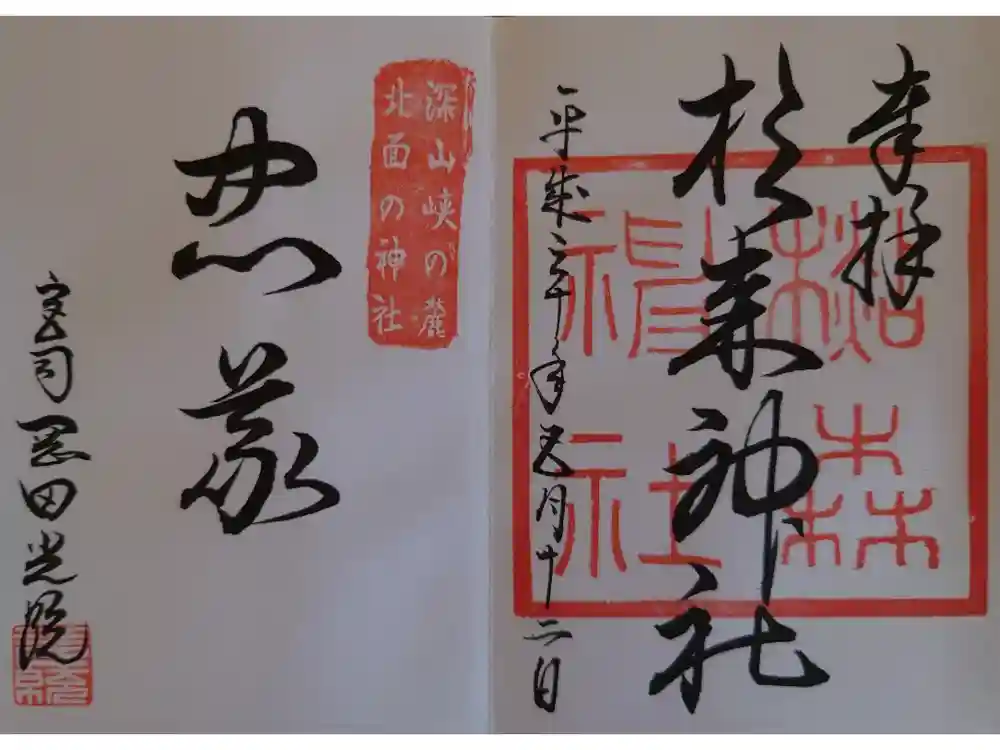 奉拝
松森神社
平成三十年五月十二日
松森
神社
深山峡の麓
北面の神社
忠義
宮司 岡田光